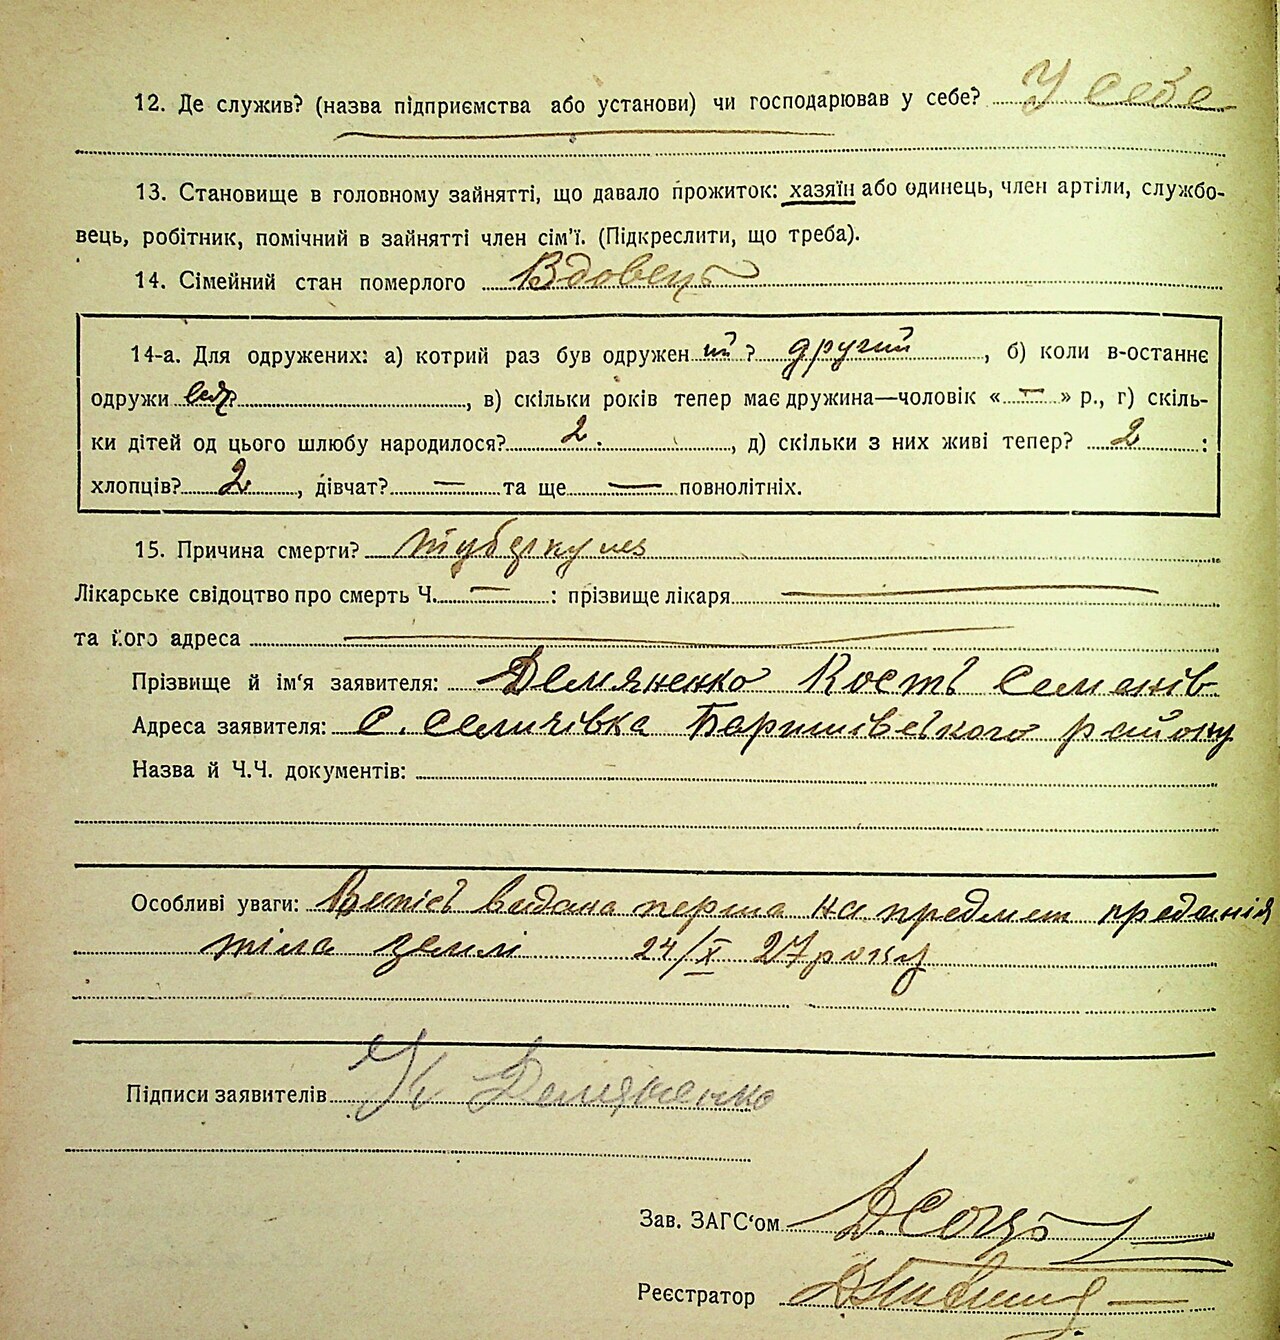 12. Де служив? (назва підприємства або установи) чи господарював у себе? У себе
13. Становище в головному зайнятті, що давало прожиток: хазяїн або одинець, член артіли, службо-
вець, робітник, помічний в зайнятті член сім'ї. (Підкреслити, що треба).
14. Сімейний стан померлого Вдовець
14-а. Для одружених: а) котрий раз був одружен ий? другий, б) коли в-останнє
одружи вся?, в) скільки років тепер має дружина—чоловік «—» р., г) скіль-
ки дітей од цього шлюбу народилося? 2., д) скільки з них живі тепер? 2:
хлопців? 2, дівчат? — та ще — повнолітніх.
15. Причина смерти? туберкульоз
Лікарське свідоцтво про смерть Ч. — : прізвище лікаря —
та його адреса —
Прізвище й ім'я заявителя: Демяненко Кость Семенів
Адреса заявителя: с. Селичівка Баришівського району
Назва й Ч.Ч. документів:
Особливі уваги: Випись видана перша на предмет преданія
тіла землі 24/X 27 року
Підписи заявителів К Демяненко
Зав. ЗАГС'ом
Реєстратор